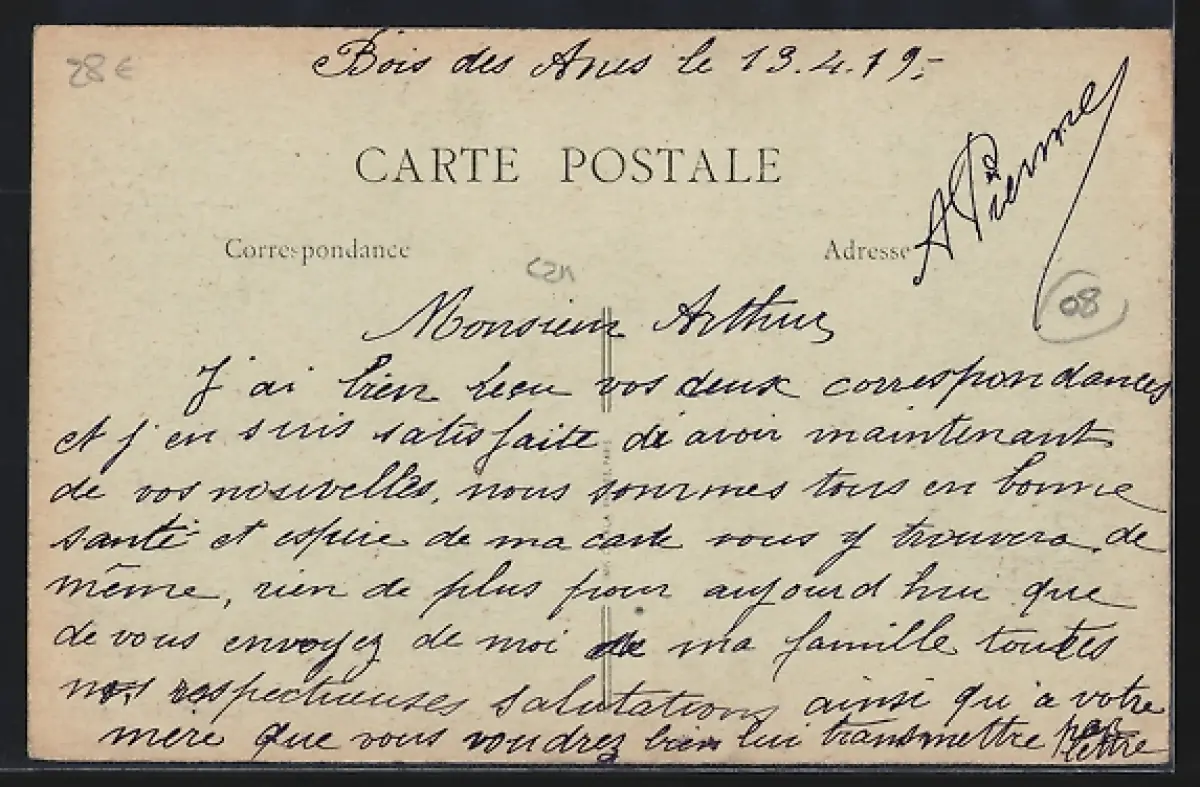 28 €
Bois des Anes le 13.4.19.-
CARTE POSTALE
A Pierme
Correspondance
Adresse
08
Monsieur Arthur
J'ai bien reçu vos deux correspondances
et j'en suis satisfaite di avoir maintenant
de vos nouvelles, nous sommes tous en bonne
santé et espère de ma carte vous y trouvera de
même, rien de plus pour aujourd hui que
de vous envoyez de moi de ma famille toutes
nos respectueuses salutations ainsi qu'à votre
mère que vous voudrez bien lui transmettre par
lettre